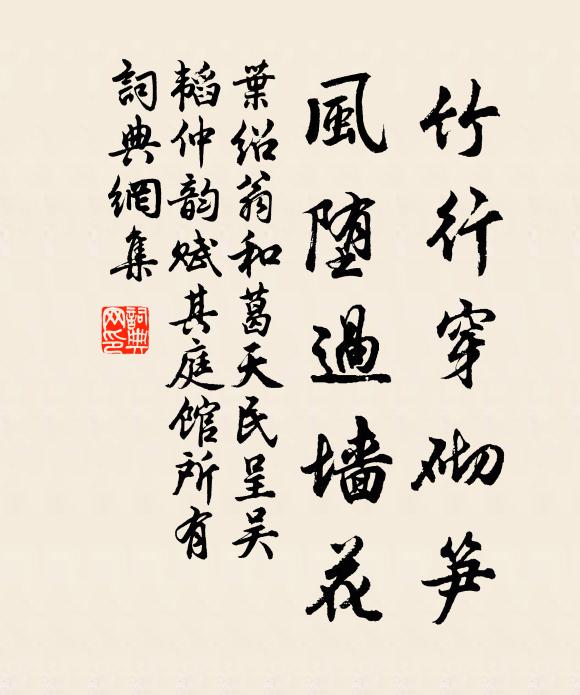 竹行穿砌笋
風堕過墙花
葉紹翁和葛天民呈吴
韜仲韵赋其庭馆所有
詞典網集
詞典网印